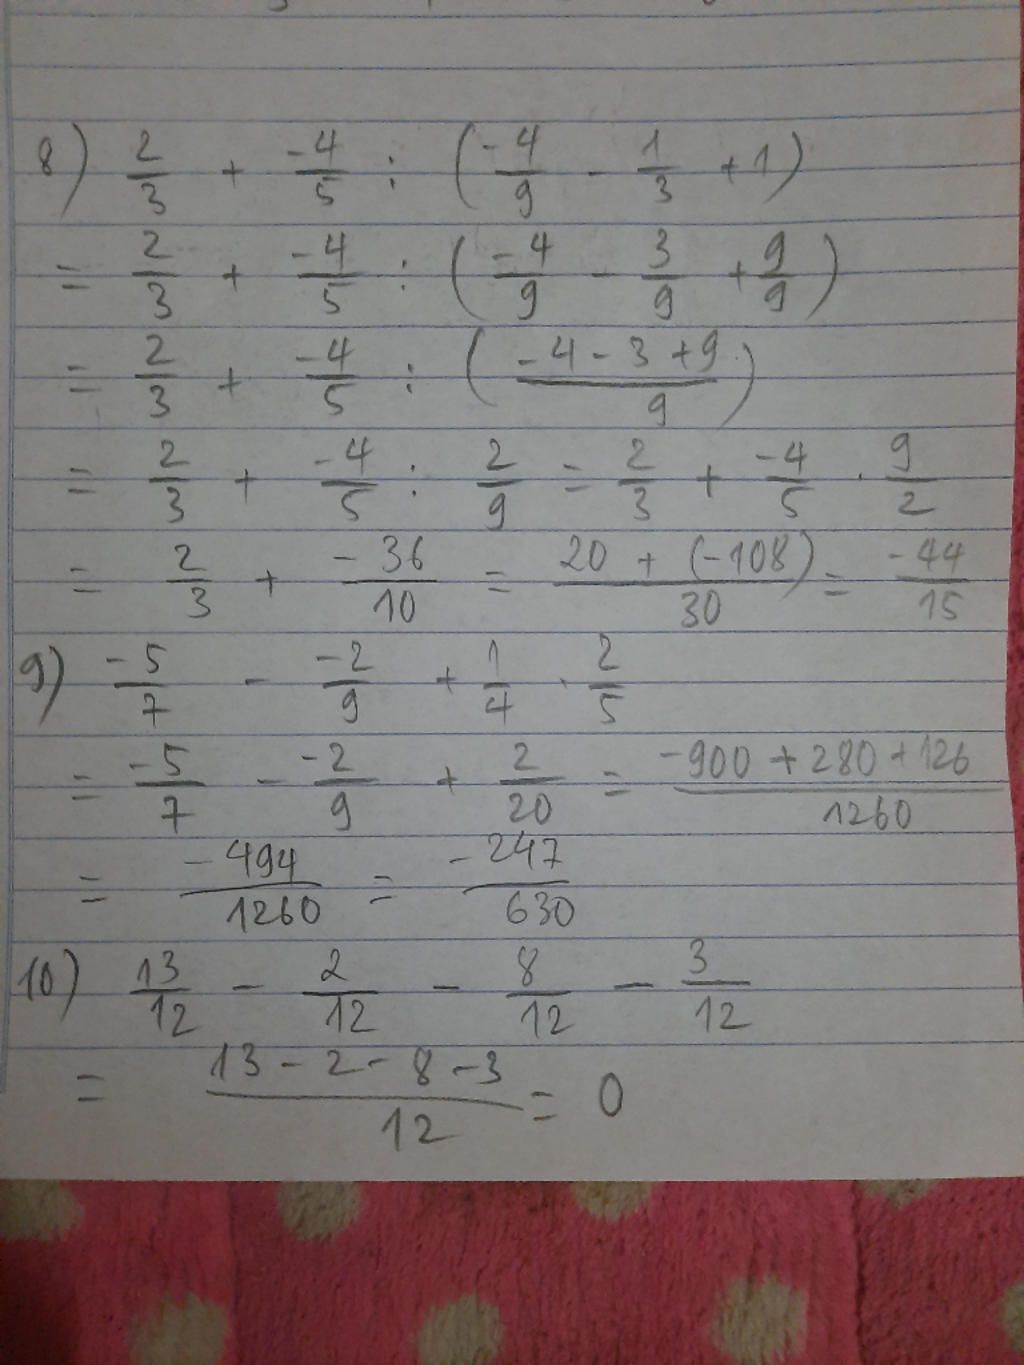 8) 2/3 + -4/5 : (-4/9 - 1/3 + 1)
= 2/3 + -4/5 : (-4/9 - 3/9 + 9/9)
= 2/3 + -4/5 : (-4 - 3 + 9/9)
= 2/3 + -4/5 : 2/9 = 2/3 + -4/5 · 9/2
= 2/3 + -36/10 = 20 + (-108)/30 = -44/15
9) -5/7 - -2/9 + 1/4 · 2/5
= -5/7 - -2/9 + 2/20 = -900 + 280 + 126/1260
= -494/1260 = -247/630
10) 13/12 - 2/12 - 8/12 - 3/12
= 13 - 2 - 8 - 3/12 = 0